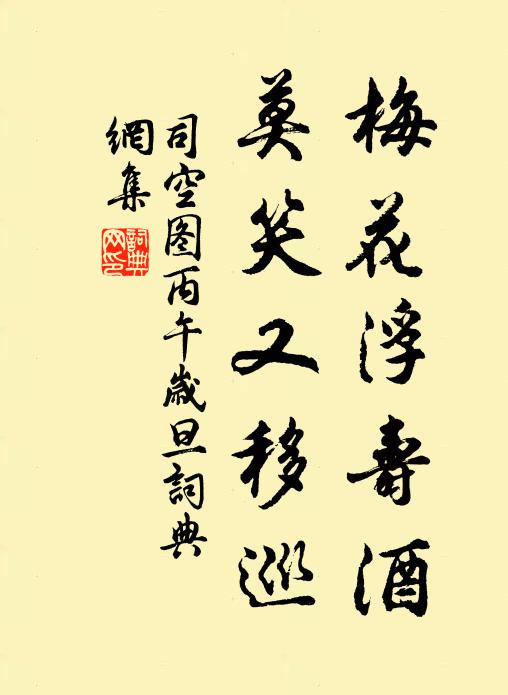 梅花浮壽酒
莫笑又移巡
司空图丙午歲旦詞典
網集
詞典
网印